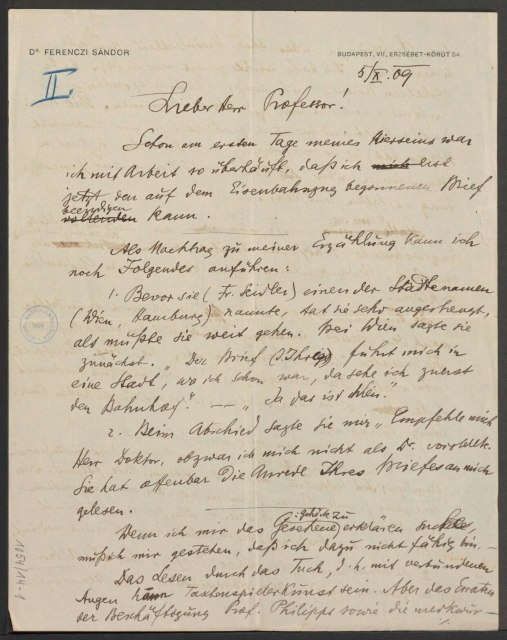 Dr. FERENCZI SÁNDOR
BUDAPEST, VII., ERZSÉBET-KÖRÚT 54.
II.
5/X. 09
Lieber Herr Professor!
Schon am ersten Tage meines Hierseins war
ich mit Arbeit so überhäuft, daß ich mich erst
jetzt den auf dem Eisenbahnzug begonnenen Brief
beendigen
vollenden kann.
Als Nachtrag zu meiner Erzählung kann ich
noch Folgendes anführen:
1. Bevor sie (Fr. Seidler) einen der Städtenamen
(Wien, Hamburg) nannte, tat sie sehr angestrengt,
als müßte sie weit gehen. Bei Wien sagte sie
zunächst: "Der Brief (Ihrer) führt mich in
eine Stadt, wo ich schon war, da sehe ich zuerst
den Bahnhof." — — "Ja das ist Wien."
2. Beim Abschied sagte sie mir "Empfehle mich
Herr Doktor, obzwar ich mich nicht als Dr. vorstellte.
Sie hat offenbar die Anrede Ihres Briefes an mich
gelesen.
Wenn ich mir das Gesehene
: gehörte zu
erklären suche,
muß ich mir gestehen, daß ich dazu nicht fähig bin. —
Das Lesen durch das Tuch, d. h. mit verbundenen
Augen kann Taschenspielerkunst sein. Aber das Erraten
der Beschäftigung Prof. Philipps sowie die merkwür-